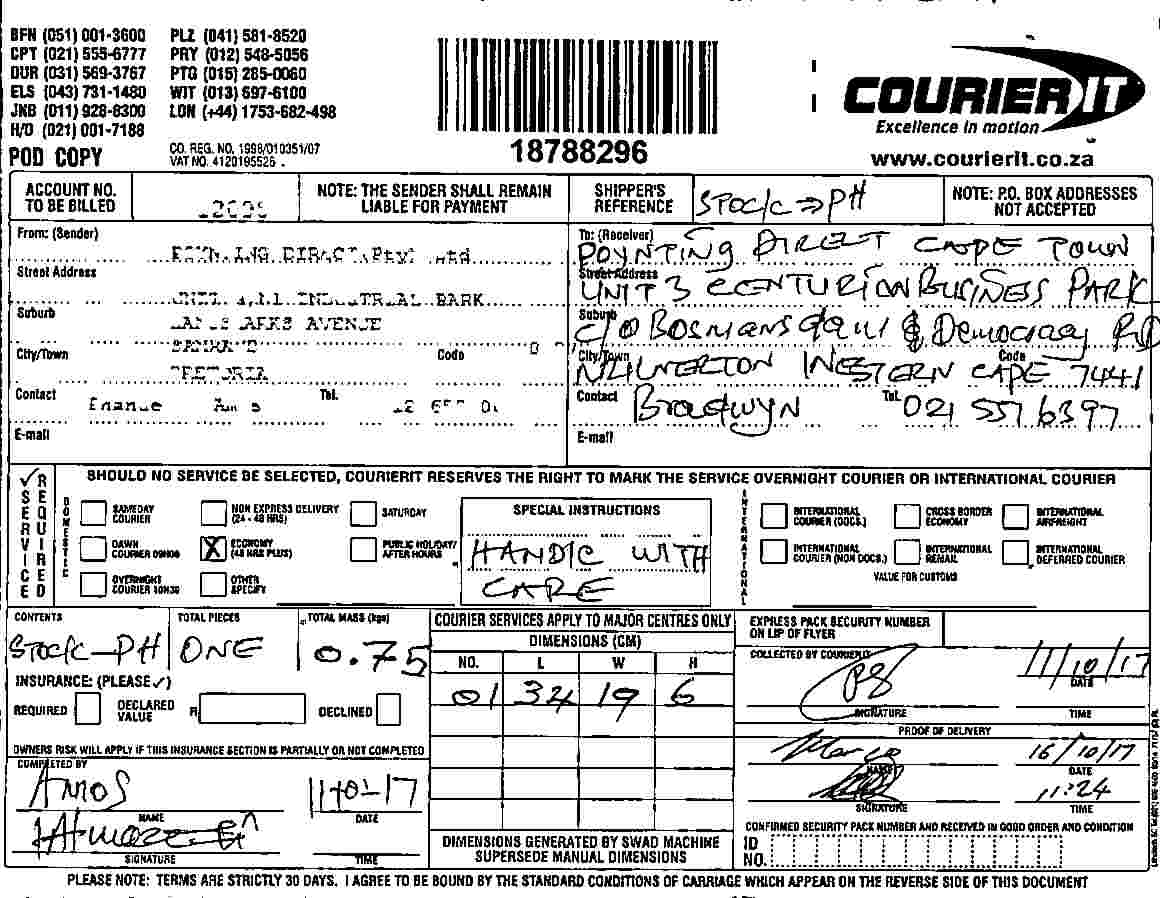 BFN (051) 001-3600 PLZ (041) 581-8520
CPT (021) 555-6777 PRY (012) 548-5056
DUR (031) 569-3767 PTG (015) 285-0060
ELS (043) 731-1480 WIT (013) 697-6100
JNB (011) 928-8300 LON (+44) 1753-682-498
H/O (021) 001-7188
POD COPY
CO. REG. NO. 1998/010351/07
VAT NO. 4120195526
18788296
COURIER IT
Excellence in motion
www.courierit.co.za
ACCOUNT NO. TO BE BILLED
NOTE: THE SENDER SHALL REMAIN LIABLE FOR PAYMENT
SHIPPER'S REFERENCE
Stock ⇒ PH
NOTE: P.O. BOX ADDRESSES NOT ACCEPTED
From: (Sender)
Street Address
INDUSTRIAL PARK
Suburb
AVENUE
City/Town Code
PRETORIA
Contact Tel.
E-mail
To: (Receiver)
POYNTING DIRECT CAPE TOWN
Street Address
UNIT 3 CENTURION BUSINESS PARK
Suburb
C/O Bosmansdam & Democracy RD
City/Town Code
MILNERTON WESTERN CAPE 7441
Contact Bradwyn Tel. 021 551 6397
E-mail
✓ SERVICE REQUIRED
SHOULD NO SERVICE BE SELECTED, COURIERIT RESERVES THE RIGHT TO MARK THE SERVICE OVERNIGHT COURIER OR INTERNATIONAL COURIER
DOMESTIC
SAMEDAY COURIER
NON EXPRESS DELIVERY (24 - 48 HRS)
SATURDAY
DAWN COURIER 09H00
X ECONOMY (48 HRS PLUS)
PUBLIC HOLIDAY/ AFTER HOURS
OVERNIGHT COURIER 10H30
OTHER SPECIFY
SPECIAL INSTRUCTIONS
HANDLE WITH
CARE
INTERNATIONAL
INTERNATIONAL COURIER (DOCS.)
CROSS BORDER ECONOMY
INTERNATIONAL AIRFREIGHT
INTERNATIONAL COURIER (NON DOCS.)
INTERNATIONAL REMAIL
INTERNATIONAL DEFERRED COURIER
VALUE FOR CUSTOMS
CONTENTS TOTAL PIECES TOTAL MASS (kgs)
Stock-PH ONE 0.75
INSURANCE: (PLEASE ✓)
REQUIRED DECLARED VALUE R DECLINED
OWNERS RISK WILL APPLY IF THIS INSURANCE SECTION IS PARTIALLY OR NOT COMPLETED
COMPLETED BY
AMOS
NAME DATE
SIGNATURE TIME
COURIER SERVICES APPLY TO MAJOR CENTRES ONLY
DIMENSIONS (CM)
NO. L W H
01 34 19 6
DIMENSIONS GENERATED BY SWAD MACHINE SUPERSEDE MANUAL DIMENSIONS
EXPRESS PACK SECURITY NUMBER ON LIP OF FLYER
COLLECTED BY COURIERIT
11/10/17
DATE
SIGNATURE TIME
PROOF OF DELIVERY
16/10/17
NAME DATE
11:24
SIGNATURE TIME
CONFIRMED SECURITY PACK NUMBER AND RECEIVED IN GOOD ORDER AND CONDITION
ID NO.
PLEASE NOTE: TERMS ARE STRICTLY 30 DAYS. I AGREE TO BE BOUND BY THE STANDARD CONDITIONS OF CARRIAGE WHICH APPEAR ON THE REVERSE SIDE OF THIS DOCUMENT